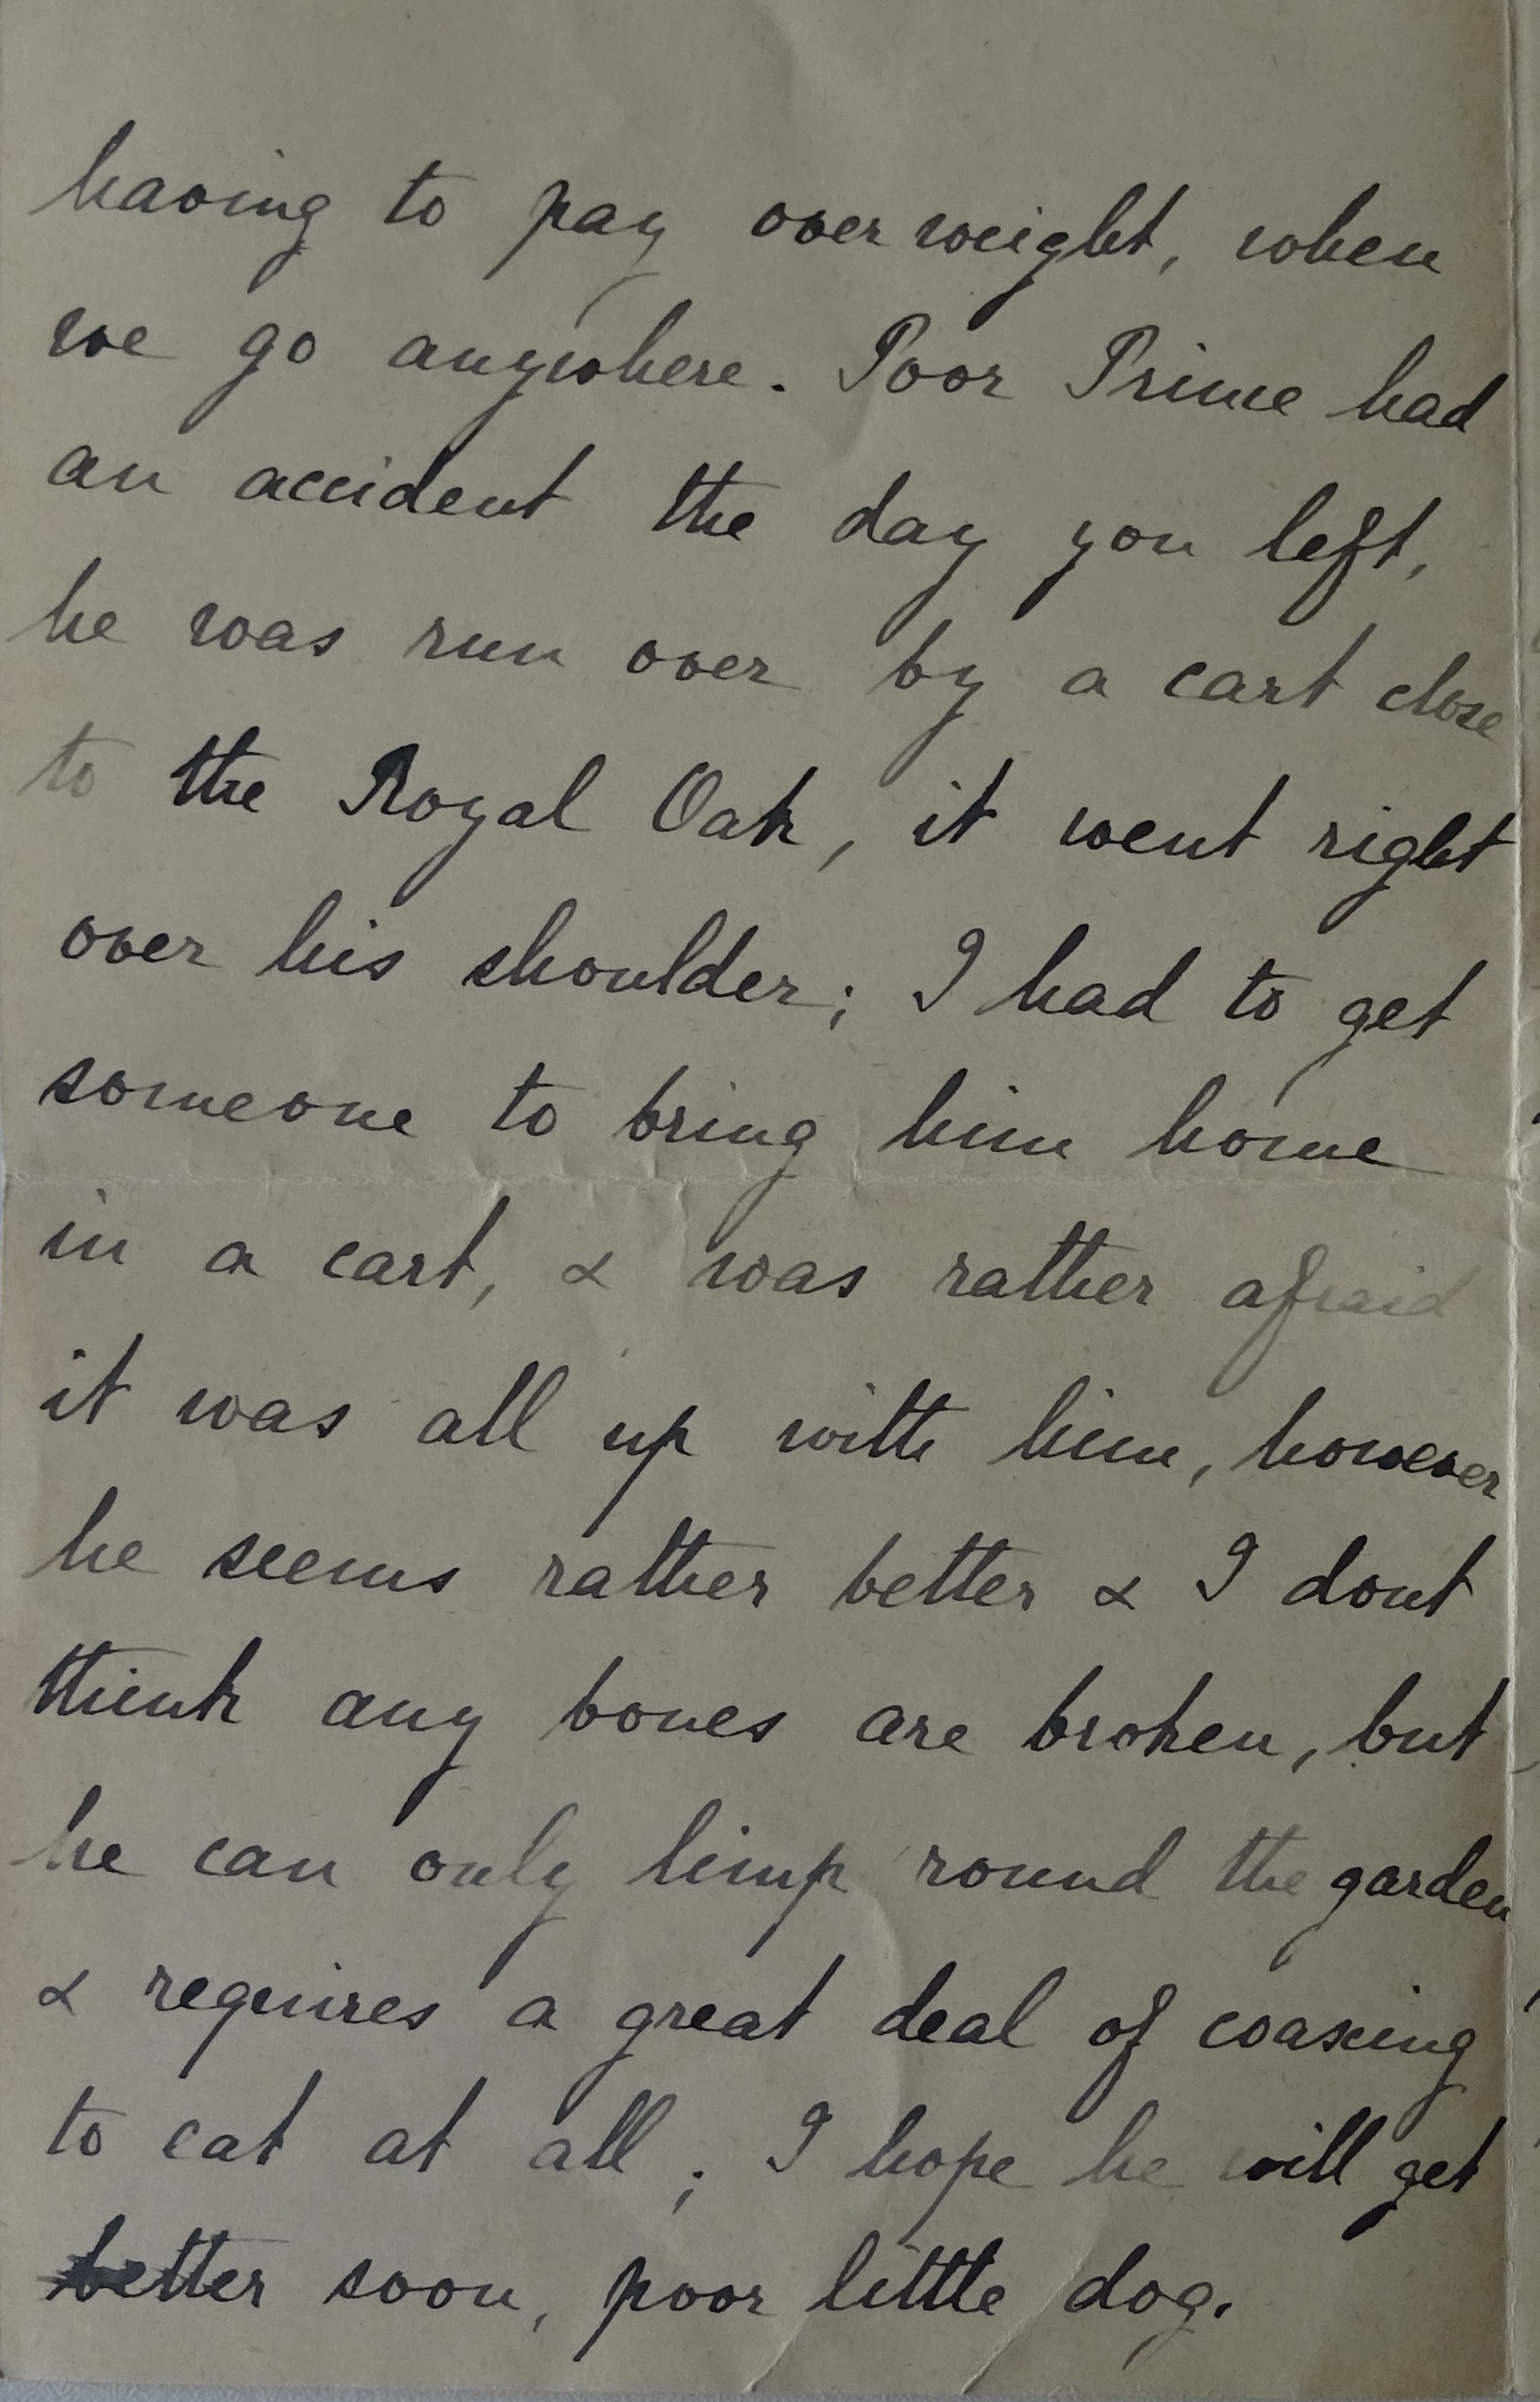 having to pay overweight, when
we go anywhere. Poor Prime had
an accident the day you left,
he was run over by a cart close
to the Royal Oak, it went right
over his shoulder; I had to get
someone to bring him home
in a cart, & was rather afraid
it was all up with him, however
he seems rather better & I dont
think any bones are broken, but
he can only limp round the garden
& requires a great deal of coaxing
to eat at all; I hope he will get
better soon, poor little dog.